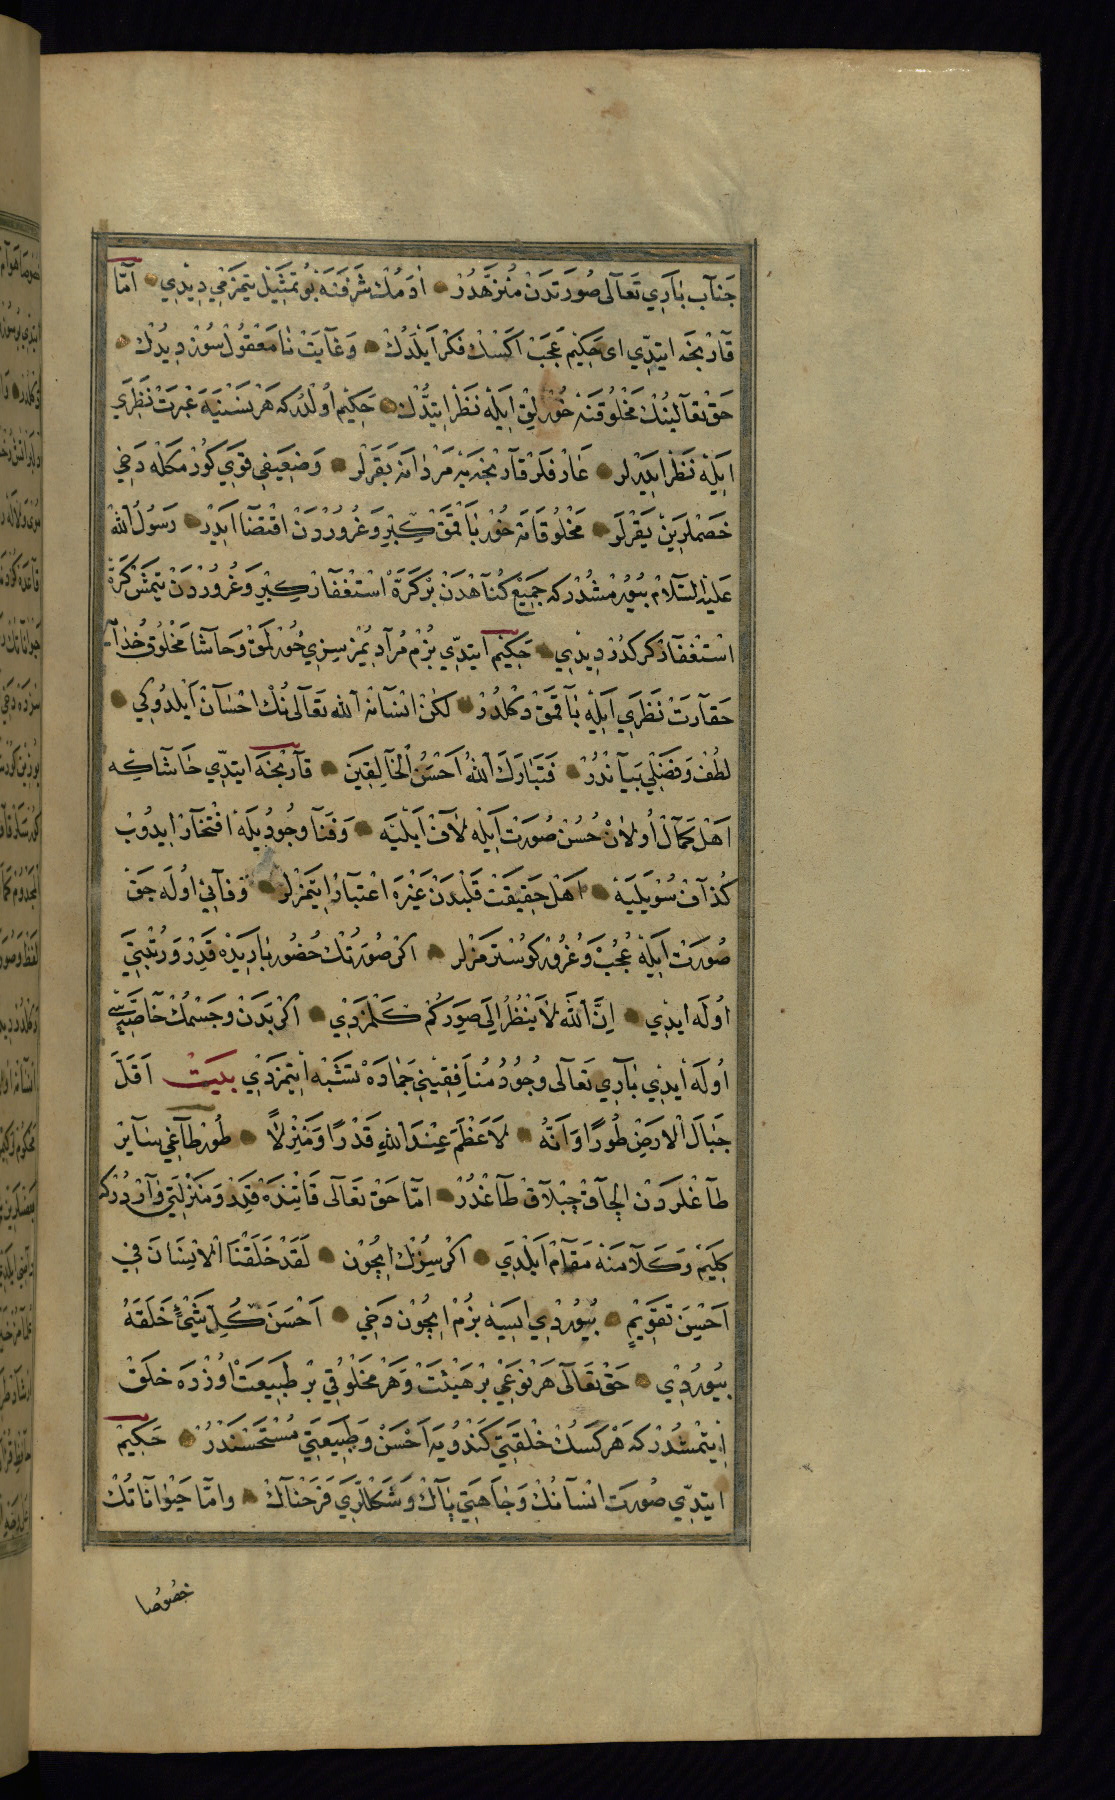 جناب باري تعالى صورتدن منزهدر اودمك شرفنه بو تمثيل يتمزمي ديدي اما
قارنجه ايتدي اى حكيم عجب اكسك فكر ايلدك وغايت نا معقول سوز ديدك
حق تعالينك مخلوقنه خورلق ايله نظر ايتدك حكيم اولدر كه هر نسنيه عبرت نظري
ايله نظر ايدرلر عارفلر قارنجه يه مردانه بقرلر وضعيفي قوي كورمكله دخي
خصملرين يقرلر مخلوقاته خور باقمق كبر وغروردن اقتضا ايدر رسول الله
عليه السلام بيورمشدر كه جميع كناهدن بر كرة استغفار كبر وغروردن يتمش كرة
استغفار كركدر ديدي حكيم ايتدي بزم مراديمز سزي خورلمق وحاشا مخلوق خدايه
حقارت نظري ايله باقمق دكلدر لكن انسانه الله تعالى نك احسان ايلدوكي
لطف وفضلي بياندر فتبارك الله احسن الخالقين قارنجه ايتدي حاشا كه
اهل كمال اولان حسن صورت ايله لاف ايليه وفنا وجود يله افتخار ايدوب
كذاف سويليه اهل حقيقت قلبدن غيره اعتبار ايتمزلر وفاني اوله جق
صورت ايله عجب وغرور كوسترمزلر اكر صورتك حضور باريده قدر ورتبتي
اوله ايدي ان الله لا ينظر الى صوركم كلمزدي اكر بدن وجسمك خاصيتي
اوله ايدي باري تعالى وجود منافقيني جماده تشبه ايتمزدي بيت اقل
جبال الارض طورا وانه لاعظم عند الله قدرا ومنزلا طور طاغي ساير
طاغلردن الچاق چبلاق طاغدر اما حق تعالى قاتنده قدر ومنزلتي واردر كه
كليم وكلامنه مقام ايلدي اكر سزك ايچون لقد خلقنا الانسان في
احسن تقويم بيوردي ايسه بزم ايچون دخي احسن كل شئ خلقه
بيوردي حق تعالى هر نوعي بر هيئت وهر مخلوقي بر طبيعت اوزره خلق
ايتمشدر كه هر كسك خلقتي كندويه احسن وطبيعتي مستحسندر حكيم
ايتدي صورت انسانك وجاهتي پاك وشكللري فرحناك واما حيواناتك
خصوصا